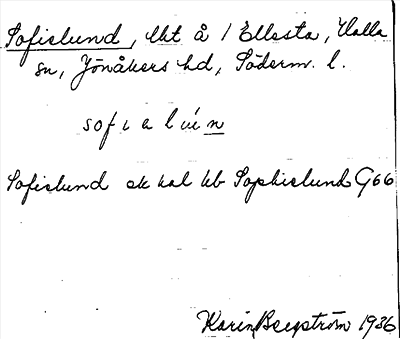 Sofislund, lht å / Ellesta, Halla
sn, Jönåkers hd, Söderm. l.
Sofislund ek kal hb Sophislund G66
Karin Bergström 1936